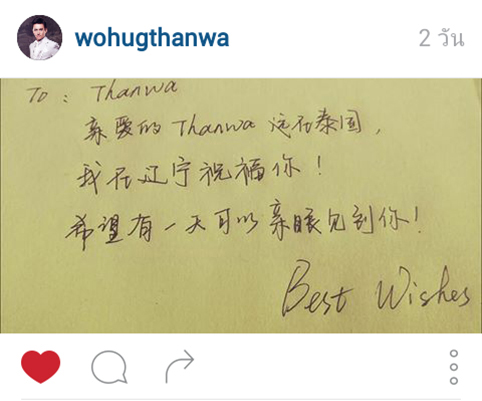 wohugthanwa
2 วัน
To : Thanwa
亲爱的 Thanwa 远在泰国，
我在辽宁祝福你！
希望有一天可以亲眼见到你！
Best Wishes